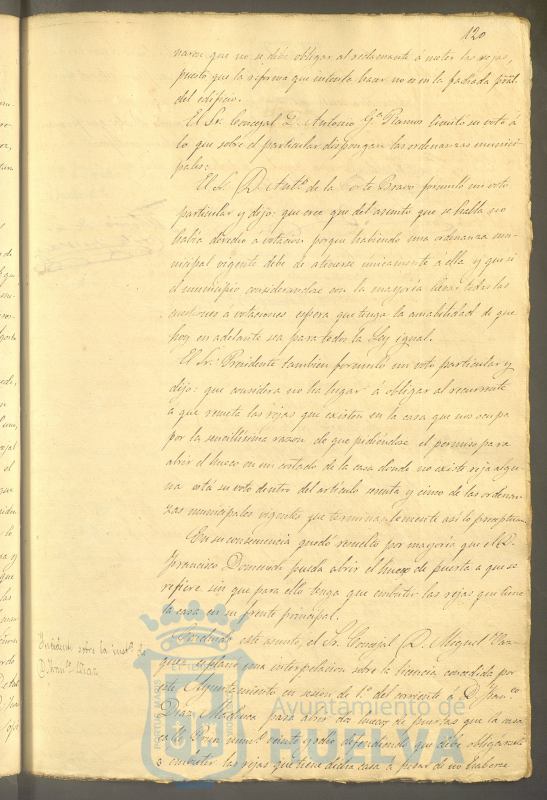 120
naron que no se debe obligar al reclamante á meter las rejas,
puesto que la reforma que intenta hacer no es en la fachada pral.
del edificio.
El Sr. Concejal D. Antonio Ga. Ramos limitó su voto á
lo que sobre el particular dispongan las ordenanzas munici-
pales.
El Sr. D. Anto. de la Corte Bravo formuló un voto
particular y dijo: que cree que del asunto que se habla no
habia derecho á votacion, porque habiendo una ordenanza mu-
nicipal vigente debe de atenerse unicamente a ella y que si
el municipio considerandose con la mayoria lleva todas las
cuestiones a votaciones espera que tenga la amabilidad de que
hoy en adelante sea para todos la Ley igual.
El Sr. Presidente tambien formuló un voto particular y
dijo: que considera no ha lugar á obligar al recurrente
a que remete las rejas que existen en la casa que nos ocupa
por la sencillisima razon de que pidiendose el permiso para
abrir el hueco en un costado de la casa donde no existe reja algu-
na está su voto dentro del artículo sesenta y cinco de las ordenan-
zas municipales vigentes que terminantemente asi lo preceptuan.
En su consecuencia quedó resuelto por mayoría que el D.
Francisco Domenech pueda abrir el hueco de puerta a que se
refiere sin que para ello tenga que embutir las rejas que tiene
la casa en su frente principal.
este asunto, el Sr. Concejal D. Miguel Vaz-
quez esplanó una interpelacion sobre la licencia concedida por
este Ayuntamiento en sesion de 1º del corriente á D. Franco
Diaz para abrir dos huecos de puertas que la casa
calle numº veinte y ocho defendiendo que debe obligársele
á embutir las rejas que tiene dicha casa a pesar de no haberse
Incidente sobre la de
D. Franco Diaz
Ayuntamiento de
HUELVA